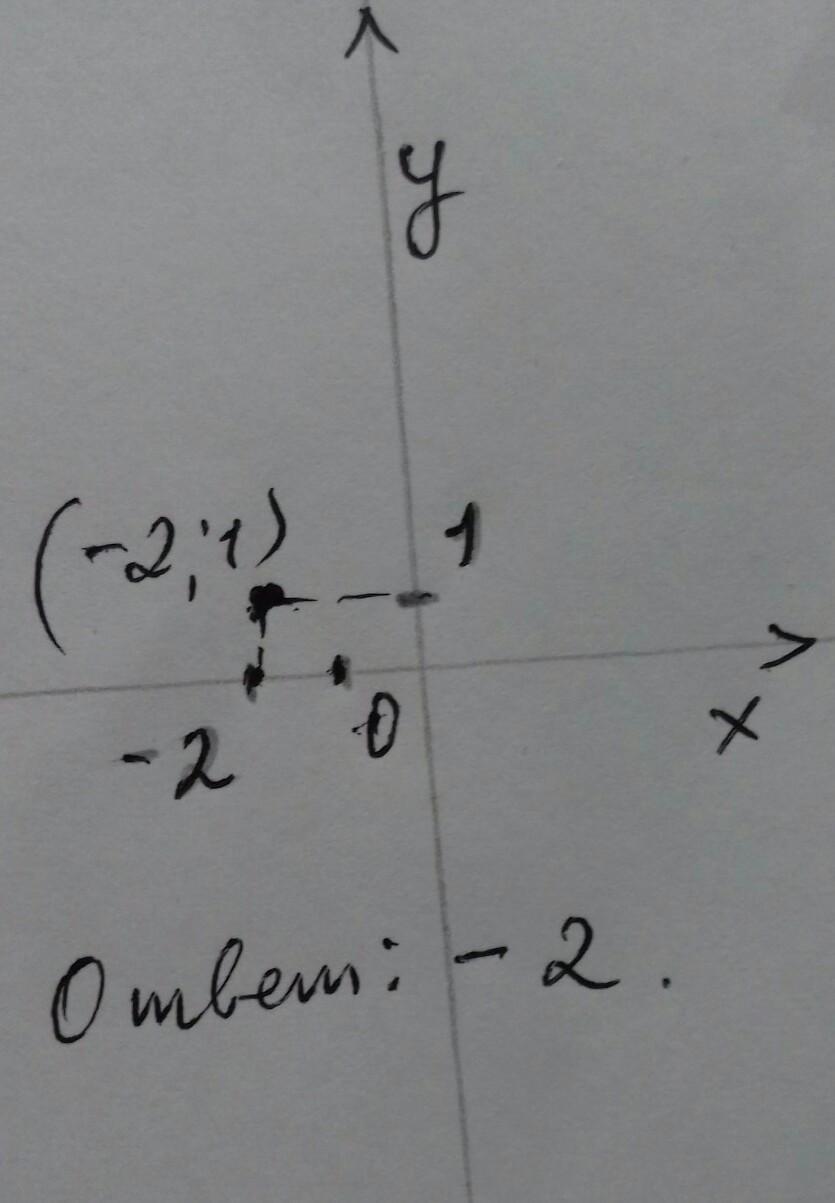 y
(-2;1)
1
-2
0
x
Ответ: -2.